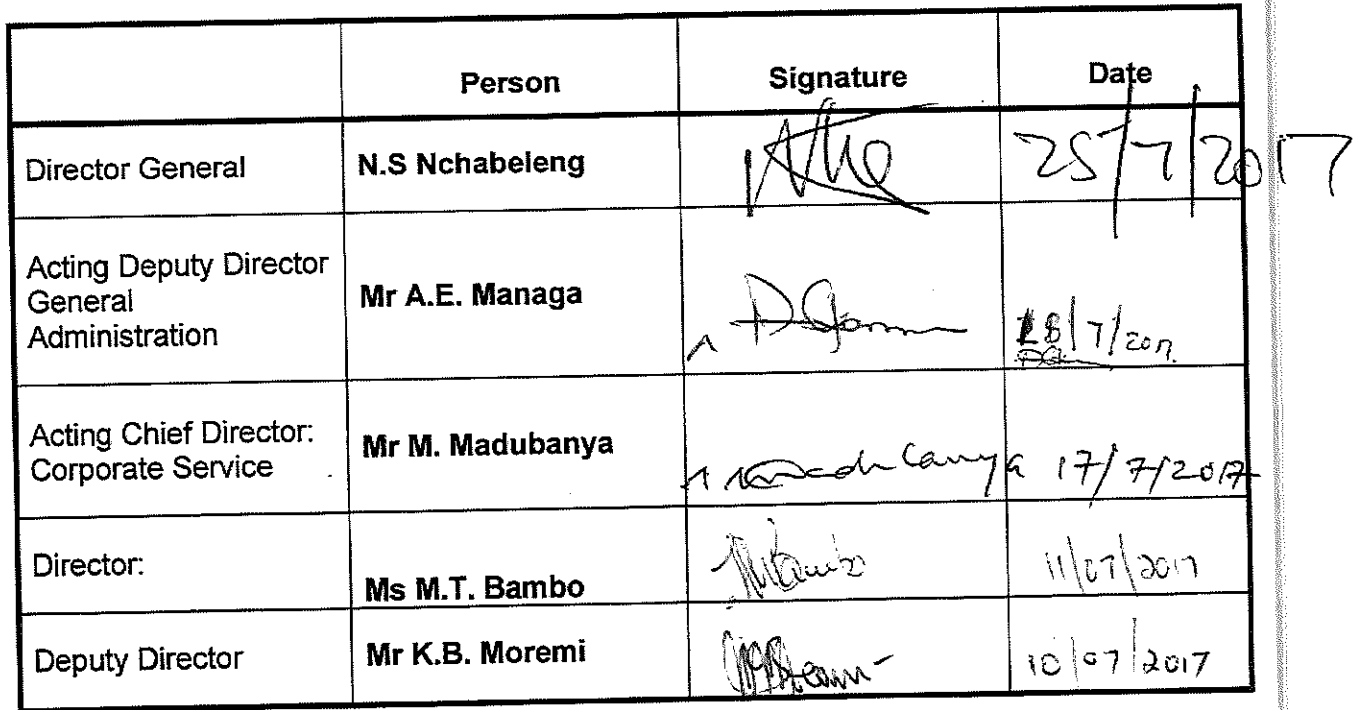 Person Signature Date
Director General N.S Nchabeleng 25/7/2017
Acting Deputy Director
General
Administration
Mr A.E. Managa 18/7/2017
Acting Chief Director:
Corporate Service
Mr M. Madubanya 17/7/2017
Director:
Ms M.T. Bambo MBambo 11/07/2017
Deputy Director Mr K.B. Moremi 10/07/2017